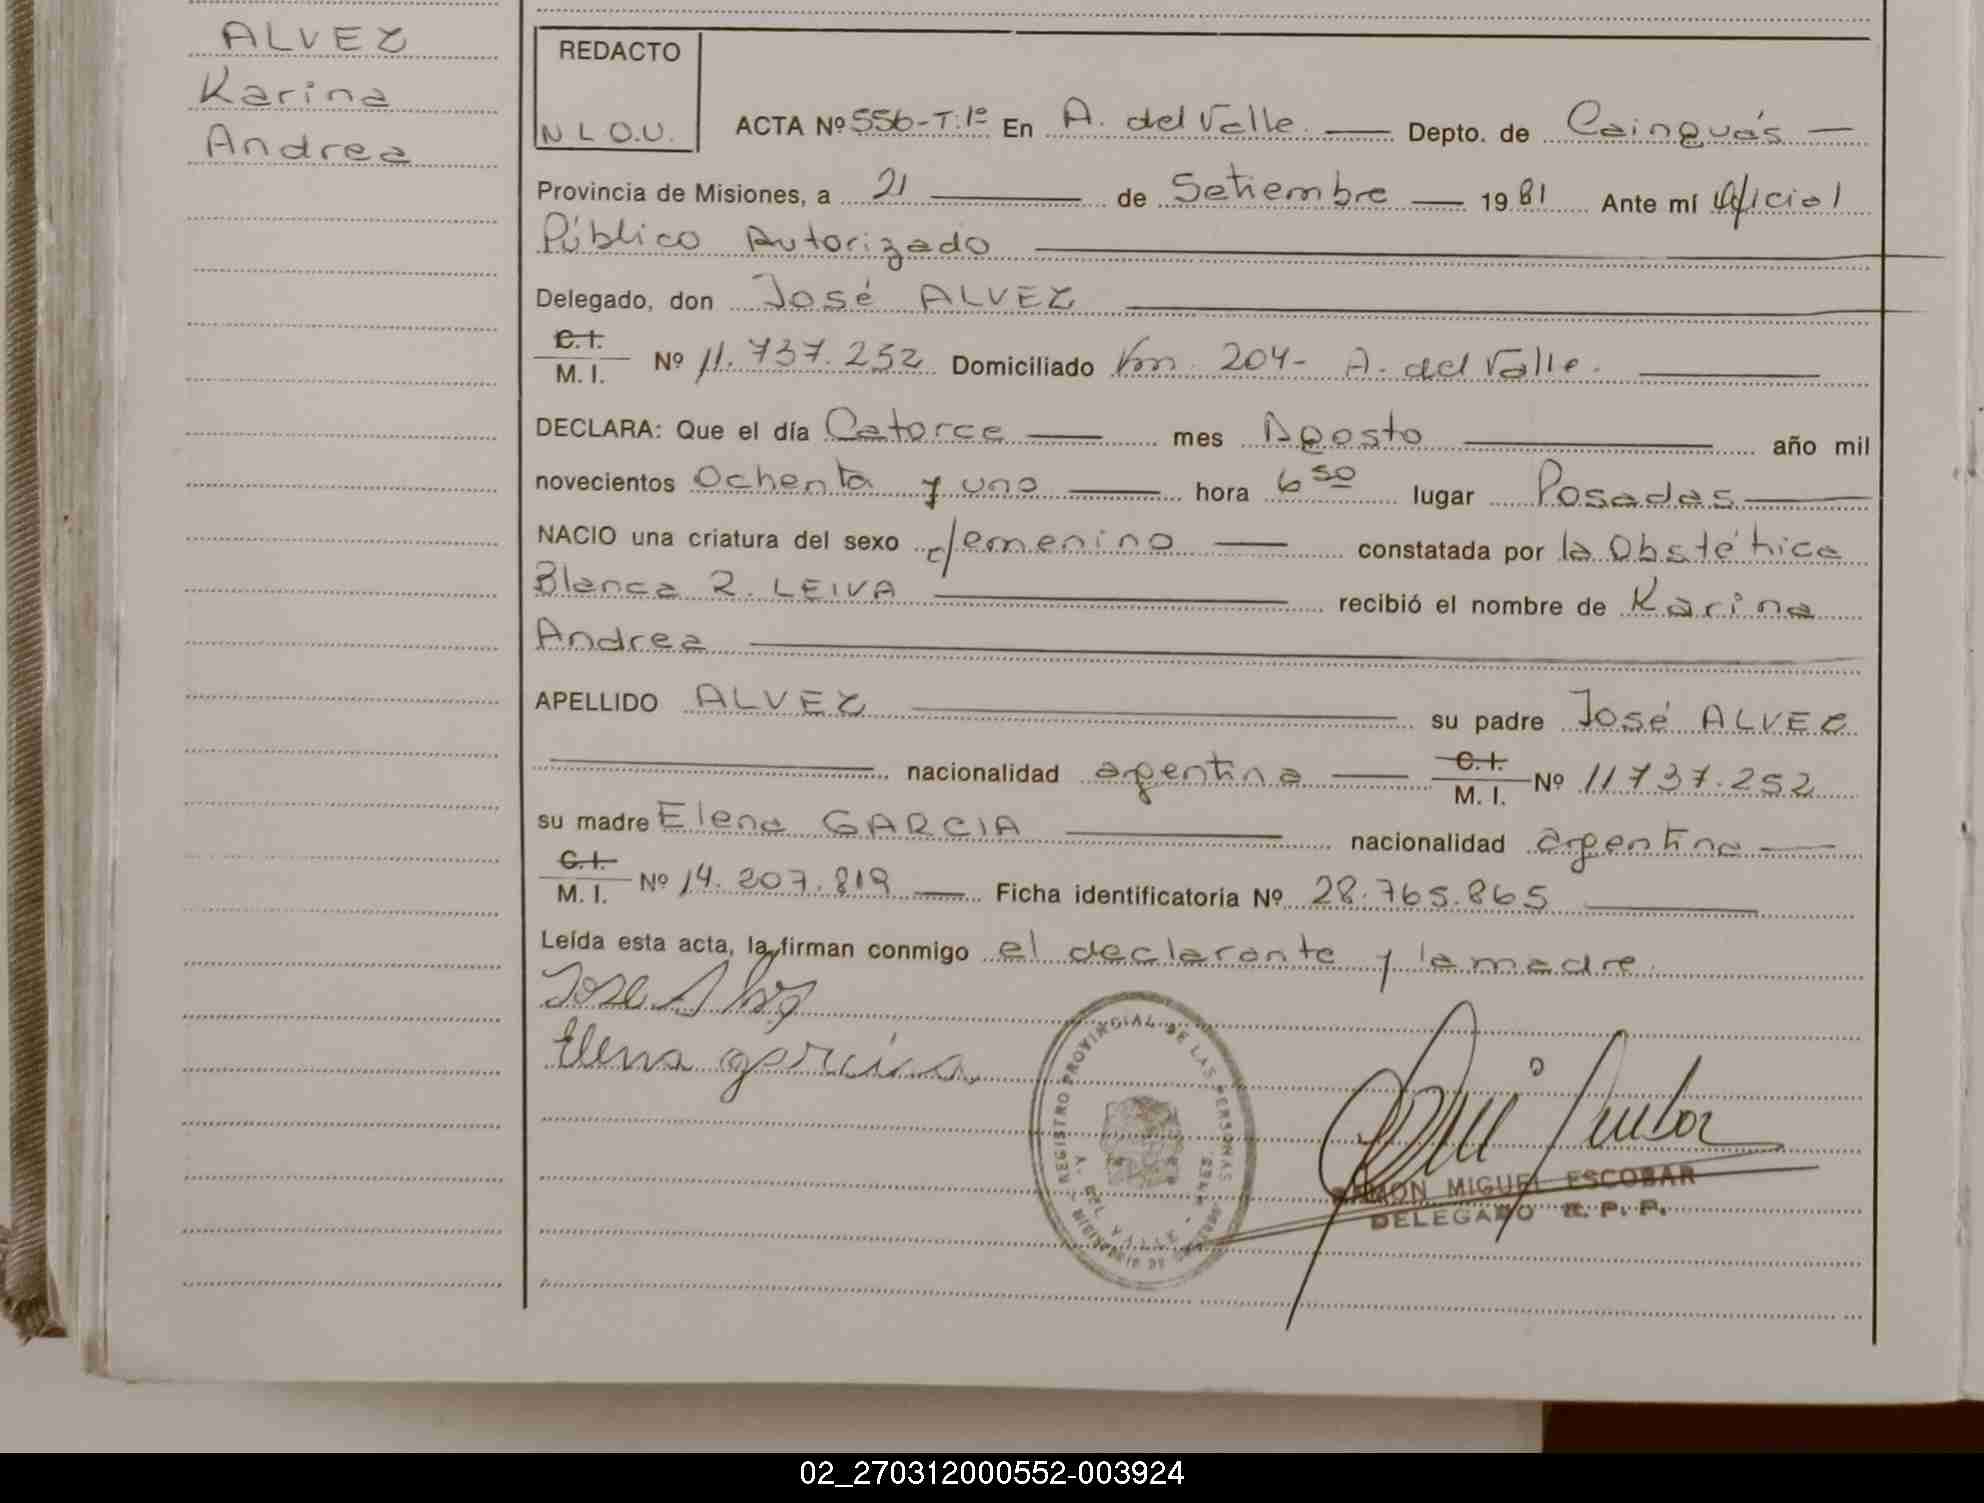 ALVEZ
Karina
Andrea
REDACTO
N L O.U.
ACTA Nº 556-T:1º En A. del Valle. Depto. de Cainguás
Provincia de Misiones, a 21 de Setiembre 1981 Ante mí Oficial
Público Autorizado
Delegado, don José ALVEZ
C.I. M. I. Nº 11.737.252 Domiciliado Km. 204- A. del Valle.
DECLARA: Que el día Catorce mes Agosto año mil
novecientos Ochenta y uno hora 6 50 lugar Posadas
NACIO una criatura del sexo femenino constatada por la Obstétrica
Blanca R. LEIVA recibió el nombre de Karina
Andrea
APELLIDO ALVEZ su padre José ALVEZ
nacionalidad argentina C.I. M. I. Nº 11737.252
su madre Elena GARCIA nacionalidad argentina
C.I. M. I. Nº 14.207.819 Ficha identificatoria Nº 28.765.865
Leída esta acta, la firman conmigo el declarante y la madre.
Jose Alvez
Elena garcia
REGISTRO PROVINCIAL DE LAS PERSONAS
A. DEL VALLE
MINISTERIO DE GOBIERNO
RAMON MIGUEL ESCOBAR
DELEGADO R. P. P.
02_270312000552-003924